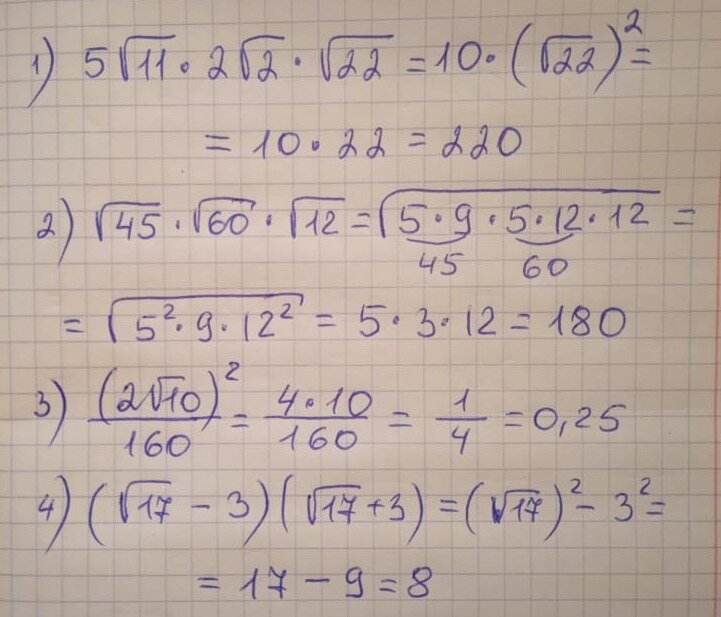 1) 5√11 · 2√2 · √22 = 10 · (√22)² =
= 10 · 22 = 220
2) √45 · √60 · √12 = √(5 · 9 · 5 · 12 · 12) =
45 60
= √(5² · 9 · 12²) = 5 · 3 · 12 = 180
3) (2√10)²/160 = 4 · 10/160 = 1/4 = 0,25
4) (√17 - 3)(√17 + 3) = (√17)² - 3² =
= 17 - 9 = 8